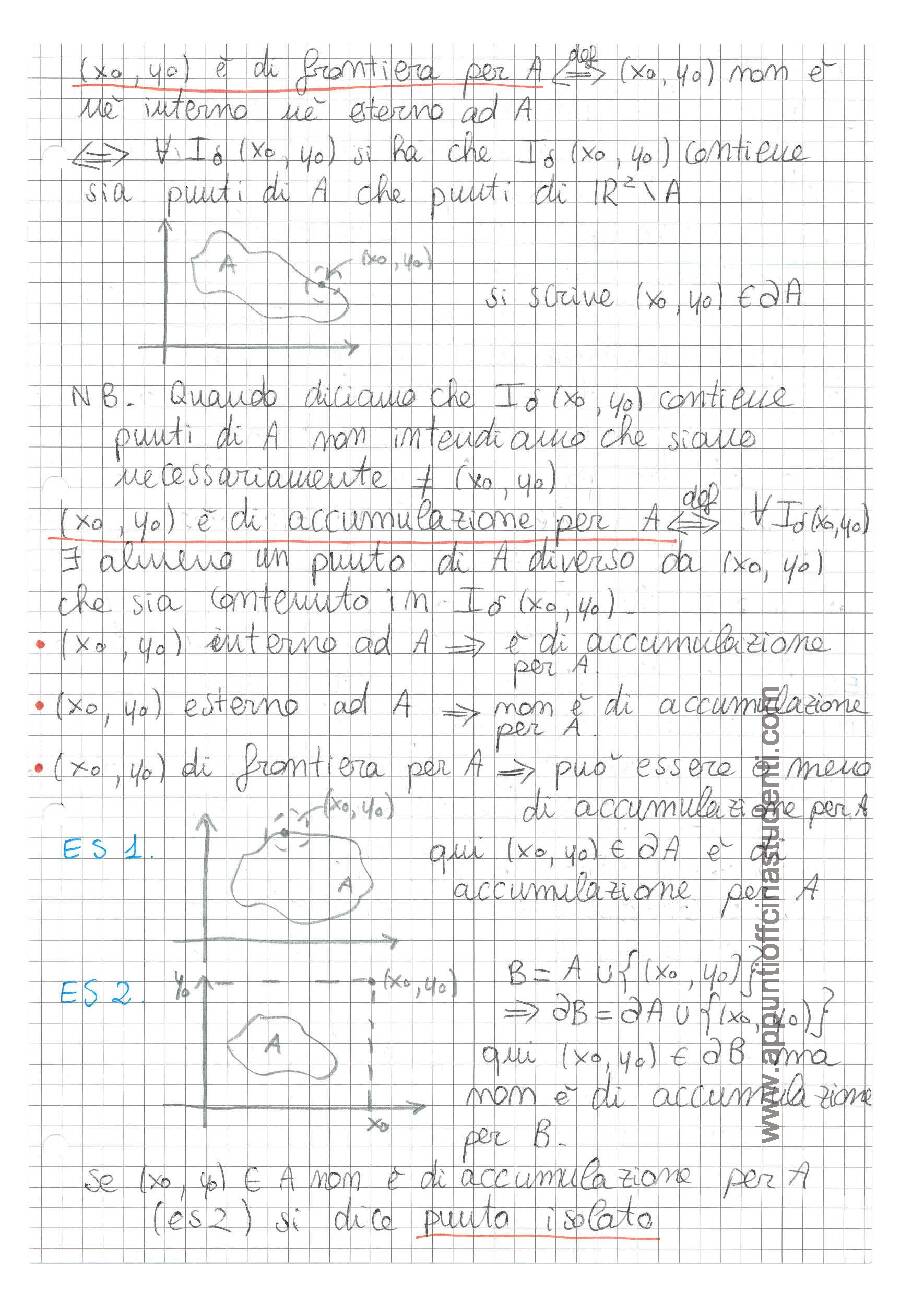 (x0, y0) è di frontiera per A ⟺ def (x0, y0) non è
nè interno nè esterno ad A
⟺ ∀ Iδ (x0, y0) si ha che Iδ (x0, y0) contiene
sia punti di A che punti di ℝ² \ A
A
(x0, y0)
si scrive (x0, y0) ∈ ∂A
NB. Quando diciamo che Iδ (x0, y0) contiene
punti di A non intendiamo che siano
necessariamente ≠ (x0, y0)
(x0, y0) è di accumulazione per A ⟺ def ∀ Iδ(x0, y0)
∃ almeno un punto di A diverso da (x0, y0)
che sia contenuto in Iδ (x0, y0).
• (x0, y0) interno ad A ⟹ è di accumulazione
per A.
• (x0, y0) esterno ad A ⟹ non è di accumulazione
per A.
• (x0, y0) di frontiera per A ⟹ può essere o meno
di accumulazione per A
ES 1.
(x0, y0)
A
qui (x0, y0) ∈ ∂A è di
accumulazione per A
ES 2.
y0
(x0, y0)
A
x0
B = A ∪ {(x0, y0)}
⟹ ∂B = ∂A ∪ {(x0, y0)}
qui (x0, y0) ∈ ∂B ma
non è di accumulazione
per B.
se (x0, y0) ∈ A non è di accumulazione per A
(es2) si dice punto isolato
www.appuntiofficinastudenti.com